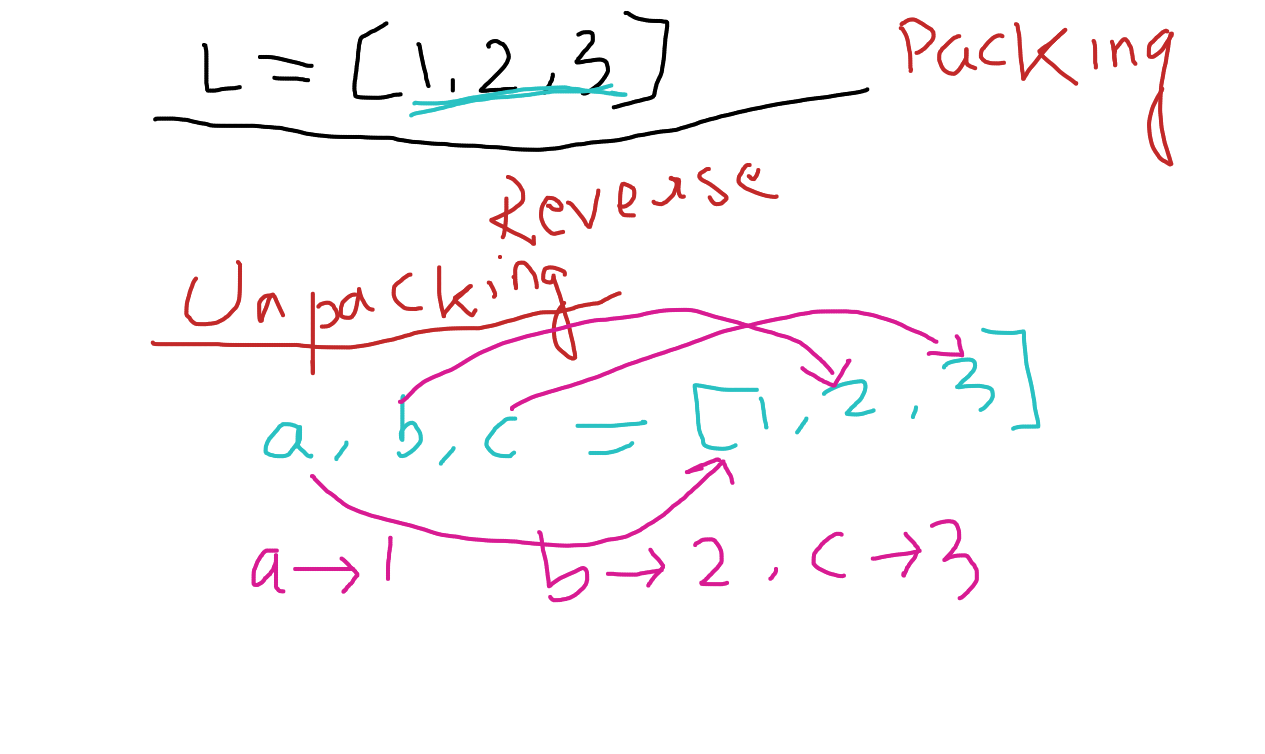 L = [1,2,3]
Packing
Reverse
Unpacking
a, b, c = [1, 2, 3]
a → 1 b → 2, c → 3